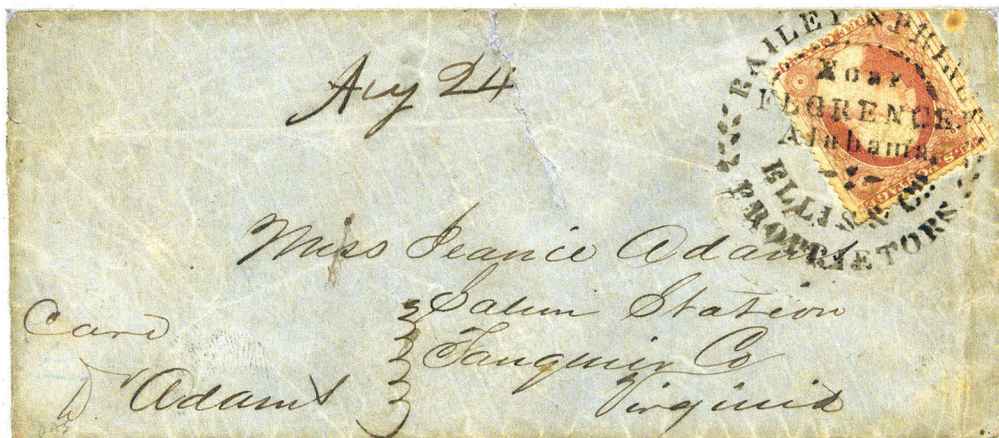 Aug 24
BAILEY SPRINGS
Near
FLORENCE,
Alabama,
ELLIS & CO.
PROPRIETORS
Miss Jeanie Adams
Salem Station
Fauquier Co
Virginia
Care
Adams